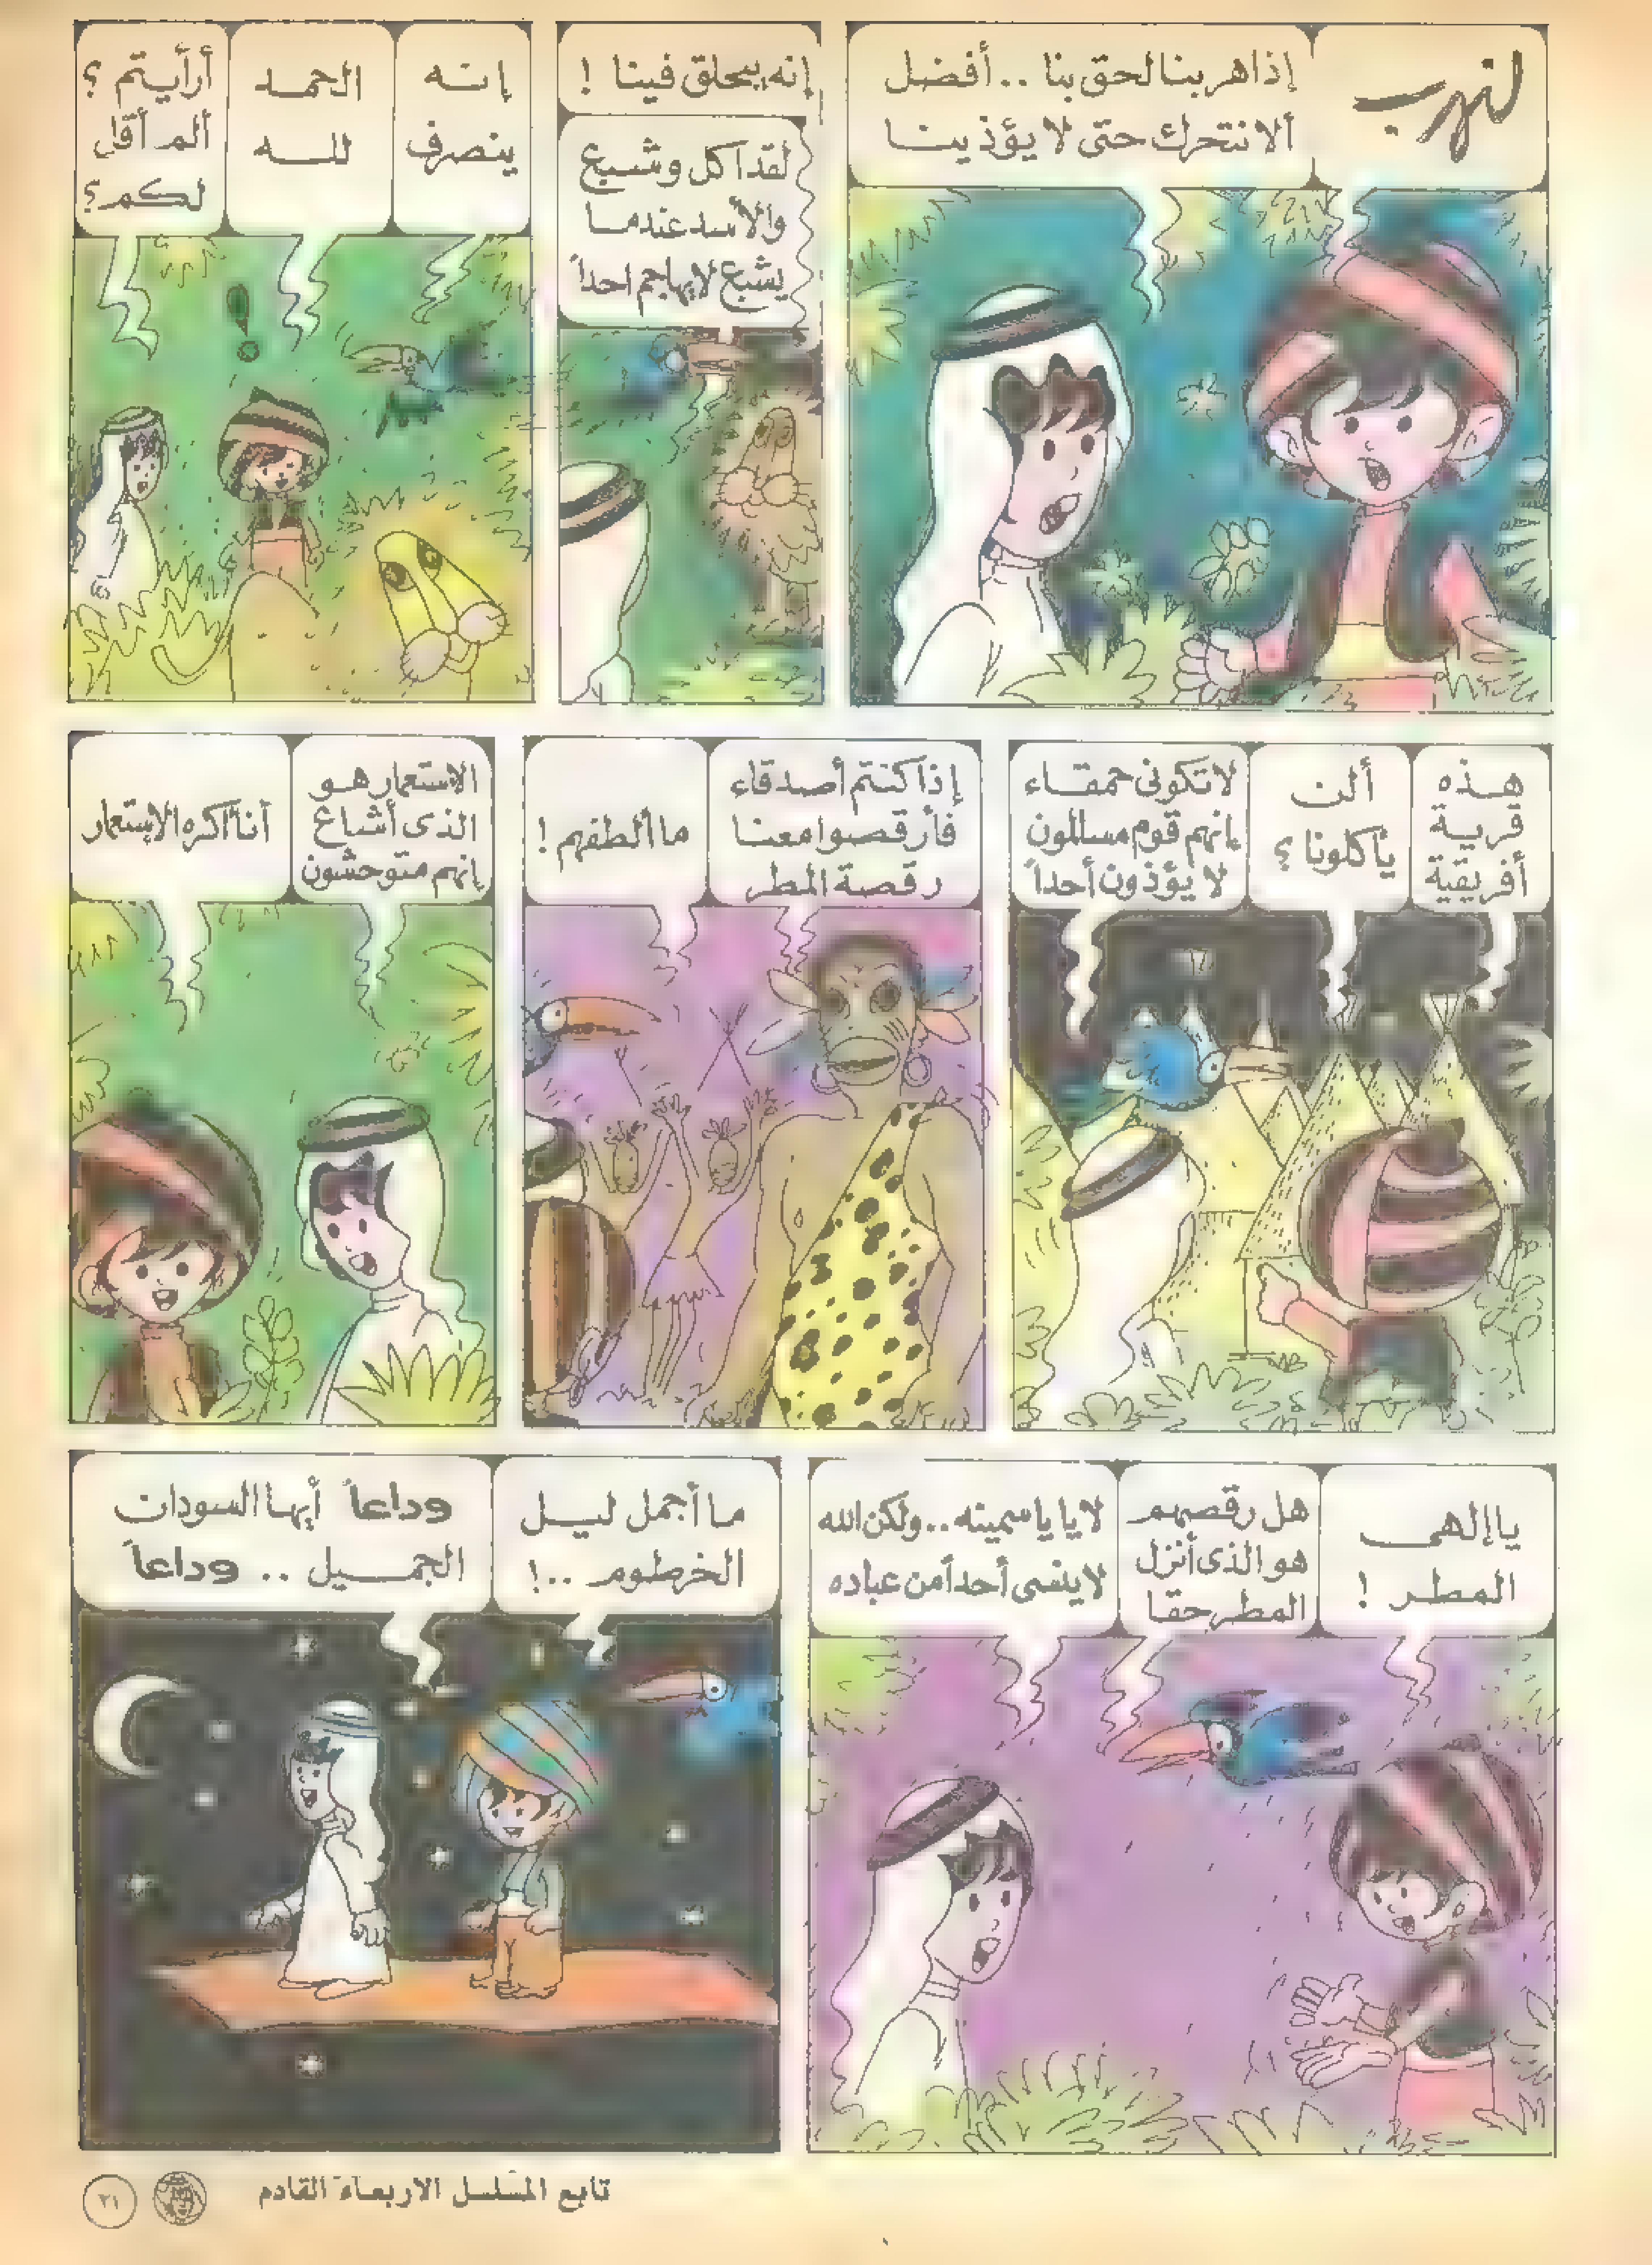 لنهرب
إذا هربنا لحق بنا .. أفضل
ألا نتحرك حتى لا يؤذينا
إنه يبحلق فينا !
لقد أكل وشبع
والأسد عندما
يشبع لا يهاجم احداً
إنه
ينصرف
الحمد
لله
أرأيتم ؟
ألم أقل
لكم ؟
هذه
قرية
أفريقية
ألن
يأكلونا ؟
لا تكونى حمقاء
إنهم قوم مسالمون
لا يؤذون أحداً
إذا كنتم أصدقاء
فأرقصوا معنا
رقصة المطر
ما ألطفهم !
الاستعمار هو
الذى أشاع
إنهم متوحشون
أنا أكره الاستعمار
يا إلهى
المطر !
هل رقصهم
هو الذى أنزل
المطر حقا
لا يا ياسمينه .. ولكن الله
لا ينسى أحداً من عباده
ما أجمل ليل
الخرطوم ..!
وداعاً أيها السودان
الجميل .. وداعاً
تابع المسلسل الاربعاء القادم
٢١